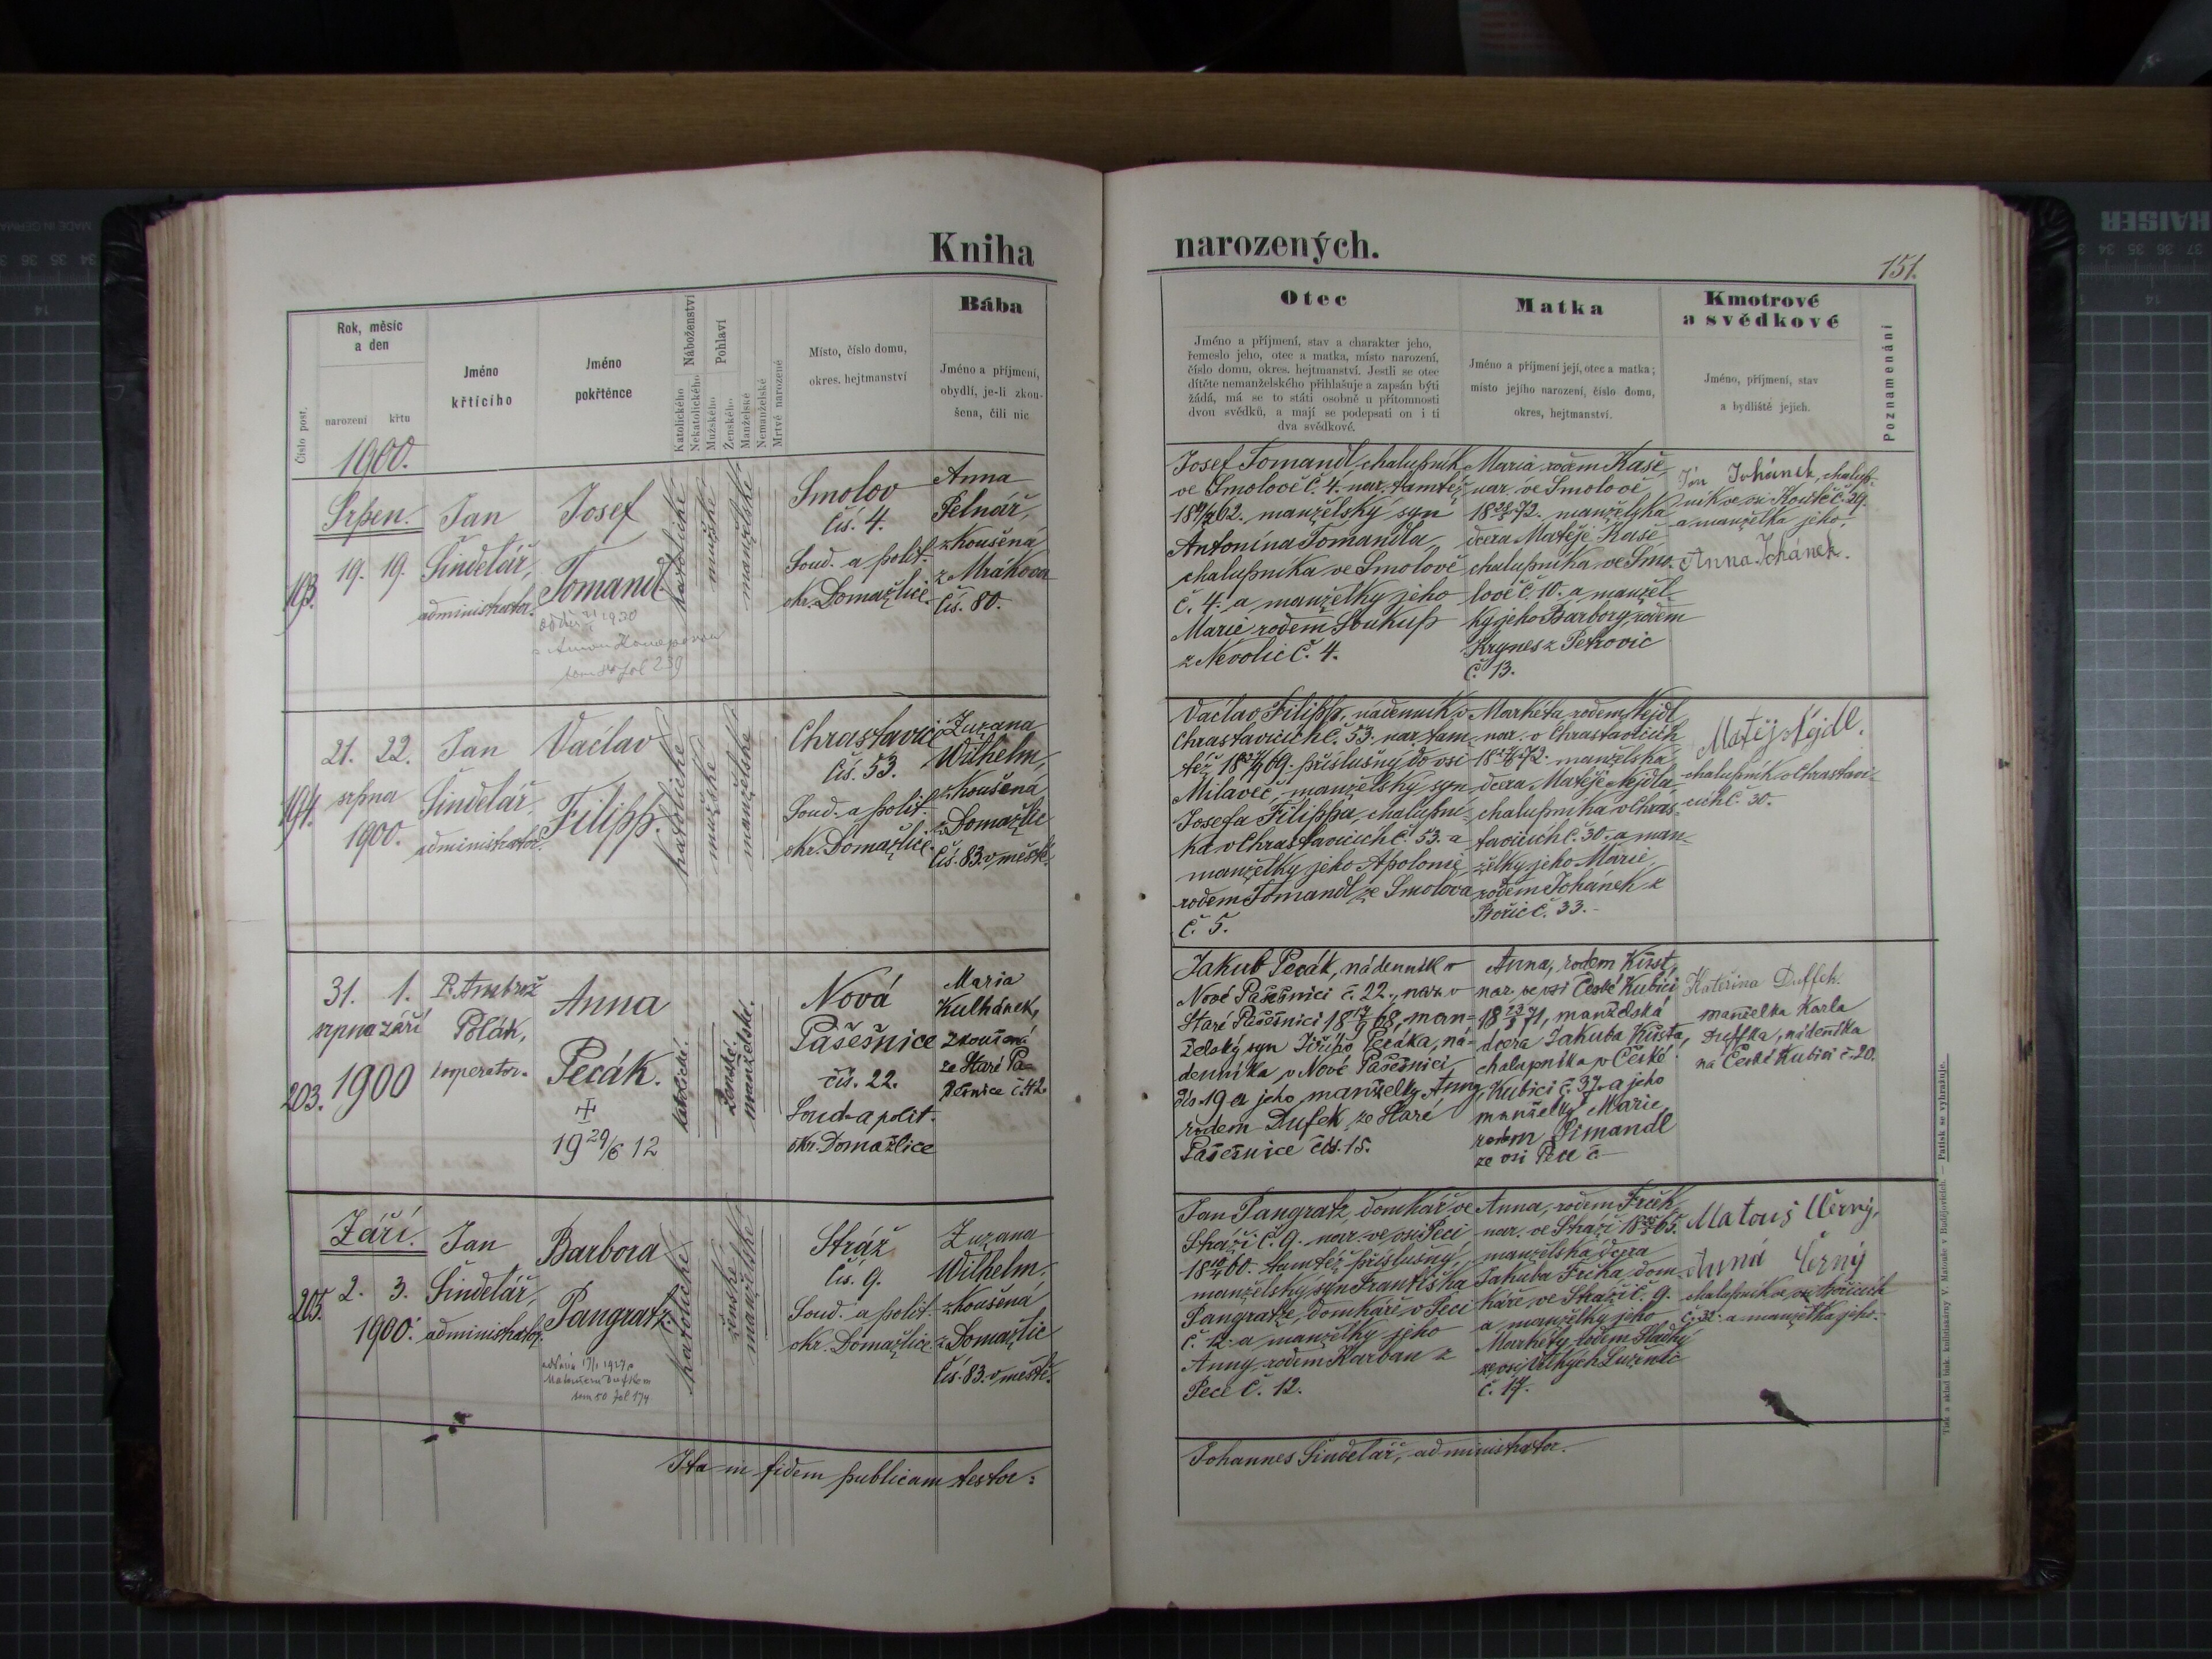 Kniha
narozených.
151.
Číslo post.
Rok, měsíc
a den
narození
křtu
Jméno
křtícího
Jméno
pokřtěnce
Náboženství
Katolického
Nekatolického
Pohlaví
Mužského
Ženského
Manželské
Nemanželské
Mrtvě narozené
Místo, číslo domu,
okres. hejtmanství
Bába
Jméno a příjmení,
obydlí, je-li zkou-
šena, čili nic
Otec
Jméno a příjmení, stav a charakter jeho,
řemeslo jeho, otec a matka, místo narození,
číslo domu, okres. hejtmanství. Jestli se otec
dítěte nemanželského přihlašuje a zapsán býti
žádá, má se to státi osobně u přítomnosti
dvou svědků, a mají se podepsati on i ti
dva svědkové.
Matka
Jméno a příjmení její, otec a matka;
místo jejího narození, číslo domu,
okres, hejtmanství.
Kmotrové
a svědkové
Jméno, příjmení, stav
a bydliště jejich.
Poznamenání
1900.
Srpen.
193.
19. 19.
Jan
Šindelář,
administrator.
Josef
Tomandl
1930
fol 239
katolické
mužské
manželské
Smolov
čís. 4.
Soud. a polit.
okr. Domažlice.
Anna
Pelnář,
zkoušená
z Mrákova
čís. 80.
Josef Tomandl chalupník
ve Smolově č. 4. nar. tamtéž
62. manželský syn
Antonína Tomandla,
chalupníka ve Smolově
č. 4. a manželky jeho
Marie rodem Soukup
z Nevolic č. 4.
Maria rodem Kaše
nar. ve Smolově
72. manželská
dcera Matěje Kaše
chalupníka ve Smo-
lově č. 10. a manžel-
ky jeho Barbory, rodem
Krynes z Petrovic
č. 13.
Jan Johánek, chalup-
ník ve vsi Koutě č. 29.
a manželka jeho,
Anna Johánek.
194.
21. 22.
srpna
1900.
Jan
Šindelář,
administrator.
Václav
Filipp.
katolické
mužské
manželské
Chrastavice
čís. 53.
Soud. a polit.
okr. Domažlice.
Zuzana
Wilhelm,
zkoušená
z Domažlic
čís. 83. v městě.
Václav Filipp, nádenník v
Chrastavicích č. 53. nar. tam-
též 69. příslušný do vsi
Milaveč, manželský syn
Josefa Filippa, chalupní-
ka v Chrastavicích č. 53. a
manželky jeho Apolonie
rodem Tomandl ze Smolova
č. 5.
Markéta rodem Nejdl
nar. v Chrastavicích
72. manželská
dcera Matěje Nejdla
chalupníka v Chras-
tavicích č. 30. a man-
želky jeho Marie,
rodem Johánek z
Bořic č. 33.-
Matěj Nejdl.
chalupník v Chrastavi-
cích č. 30.
203.
31. 1.
srpna září
1900
P. Ambrož
Polák,
cooperator.
Anna
Pecák.
19 29/6 12
katolické.
ženské.
manželské.
Nová
Pášešnice
čís. 22.
Soud. a polit.
okr. Domažlice
Maria
Kulhánek,
zkoušená
ze Staré Pa-
šešnice č. 42.
Jakub Pecák, nádenník v
Nové Pašešnici č. 22., nar. v
Staré Pašešnici 68, man-
želský syn Jiřího Pecáka, ná-
denníka v Nové Pašešnici
čís. 19 a jeho manželky Anny,
rodem Dufek ze Staré
Pašešnice čís. 15.
Anna, rodem Kürst,
nar. ve vsi České Kubici
71, manželská
dcera Jakuba Kürsta,
chalupníka v České
Kubici č. 37. a jeho
manželky Marie,
rodem Simandl
ze vsi Pece č. -
Kateřina Duffek.
manželka Karla
Duffka, nádeníka
na České Kubici č. 20.
Září.
205.
2. 3.
1900.
Jan
Šindelář,
administrator.
Barbora
Pangratz.
1927
Matoušem Dufkem
tom 50 fol 174
katolické
ženské
manželské
Stráž
čís. 9.
Soud. a polit.
okr. Domažlice.
Zuzana
Wilhelm.
zkoušená
z Domažlic
čís. 83. v městě.
Jan Pangratz, domkář ve
Stráži č. 9. nar. ve vsi Peci
60. tamtéž příslušný,
manželský syn Františka
Pangratze, domkáře v Peci
č. 12. a manželky jeho
Anny rodem Karban z
Peci č. 12.
Anna, rodem Frček
nar. ve Stráži 65.
manželská dcera
Jakuba Frčka, dom-
káře, ve Stráži č. 9.
a manželky jeho
Markéty rodem Sladký
ze vsi Velkých Luženic
č. 17.
Matouš Černý,
Anna Černý
chalupník ve vsi Bořicích
č. 32. a manželka jeho.
Ita in fidem publicam testor:
Johannes Šindelář, administrator.
Tisk a sklad tisk. knihtiskárny V. Matouše v Budějovicích. — Patisk se vyhražuje.
HAISER
MADE IN GERMANY